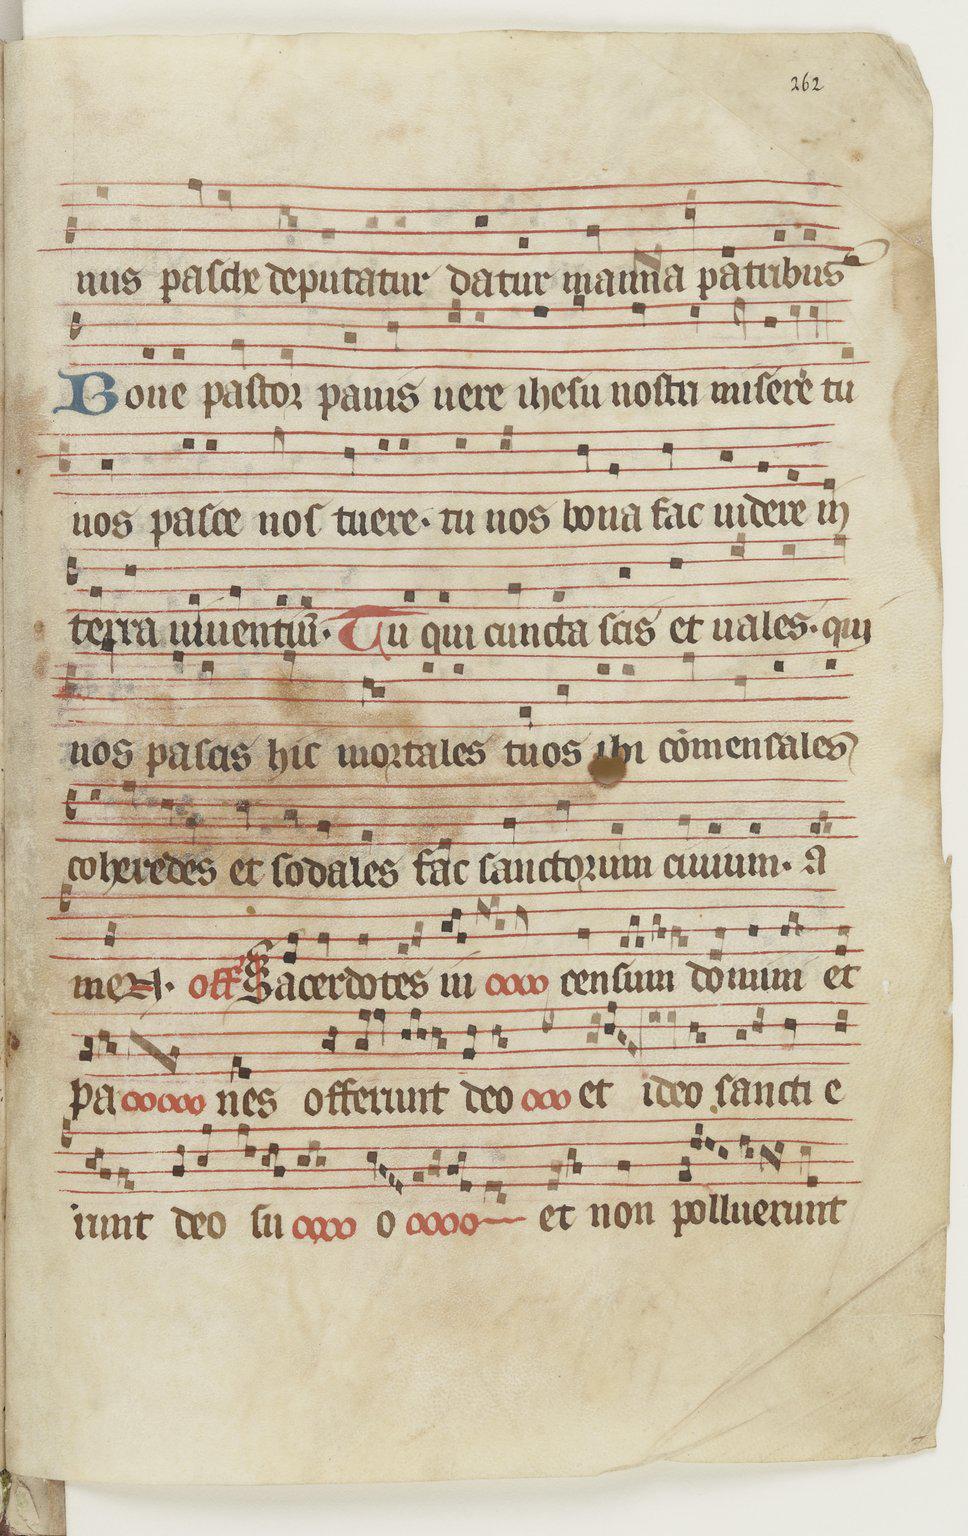 262
nus pasche deputatur datur manna patribus
Bone pastor panis uere ihesu nostri miserere tu
nos pasce nos tuere· tu nos bona fac uidere in
terra uiuentiū· Tu qui cuncta scis et uales· qui
nos pascis hic mortales tuos ibi cōmensales
coheredes et sodales fac sanctorum ciuium· A
men· off Sacerdotes in censum domini et
pa nes offerunt deo et ideo sancti e
runt deo su o et non polluerunt